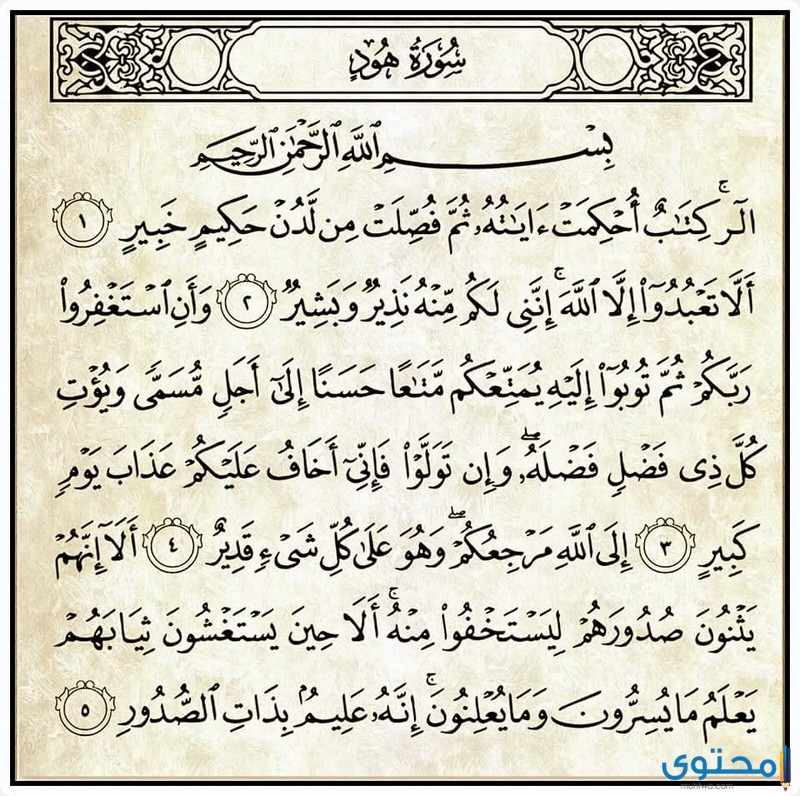 سُورَةُ هُودٍ
بِسْمِ ٱللَّهِ ٱلرَّحْمَٰنِ ٱلرَّحِيمِ
الٓرۚ كِتَٰبٌ أُحْكِمَتْ ءَايَٰتُهُۥ ثُمَّ فُصِّلَتْ مِن لَّدُنْ حَكِيمٍ خَبِيرٍ ١
أَلَّا تَعْبُدُوٓا۟ إِلَّا ٱللَّهَۚ إِنَّنِى لَكُم مِّنْهُ نَذِيرٌ وَبَشِيرٌ ٢ وَأَنِ ٱسْتَغْفِرُوا۟
رَبَّكُمْ ثُمَّ تُوبُوٓا۟ إِلَيْهِ يُمَتِّعْكُم مَّتَٰعًا حَسَنًا إِلَىٰٓ أَجَلٍ مُّسَمًّى وَيُؤْتِ
كُلَّ ذِى فَضْلٍ فَضْلَهُۥۖ وَإِن تَوَلَّوْا۟ فَإِنِّىٓ أَخَافُ عَلَيْكُمْ عَذَابَ يَوْمٍ
كَبِيرٍ ٣ إِلَى ٱللَّهِ مَرْجِعُكُمْۖ وَهُوَ عَلَىٰ كُلِّ شَىْءٍ قَدِيرٌ ٤ أَلَآ إِنَّهُمْ
يَثْنُونَ صُدُورَهُمْ لِيَسْتَخْفُوا۟ مِنْهُۚ أَلَا حِينَ يَسْتَغْشُونَ ثِيَابَهُمْ
يَعْلَمُ مَا يُسِرُّونَ وَمَا يُعْلِنُونَۚ إِنَّهُۥ عَلِيمٌۢ بِذَاتِ ٱلصُّدُورِ ٥
محتوى
muhtwa.com